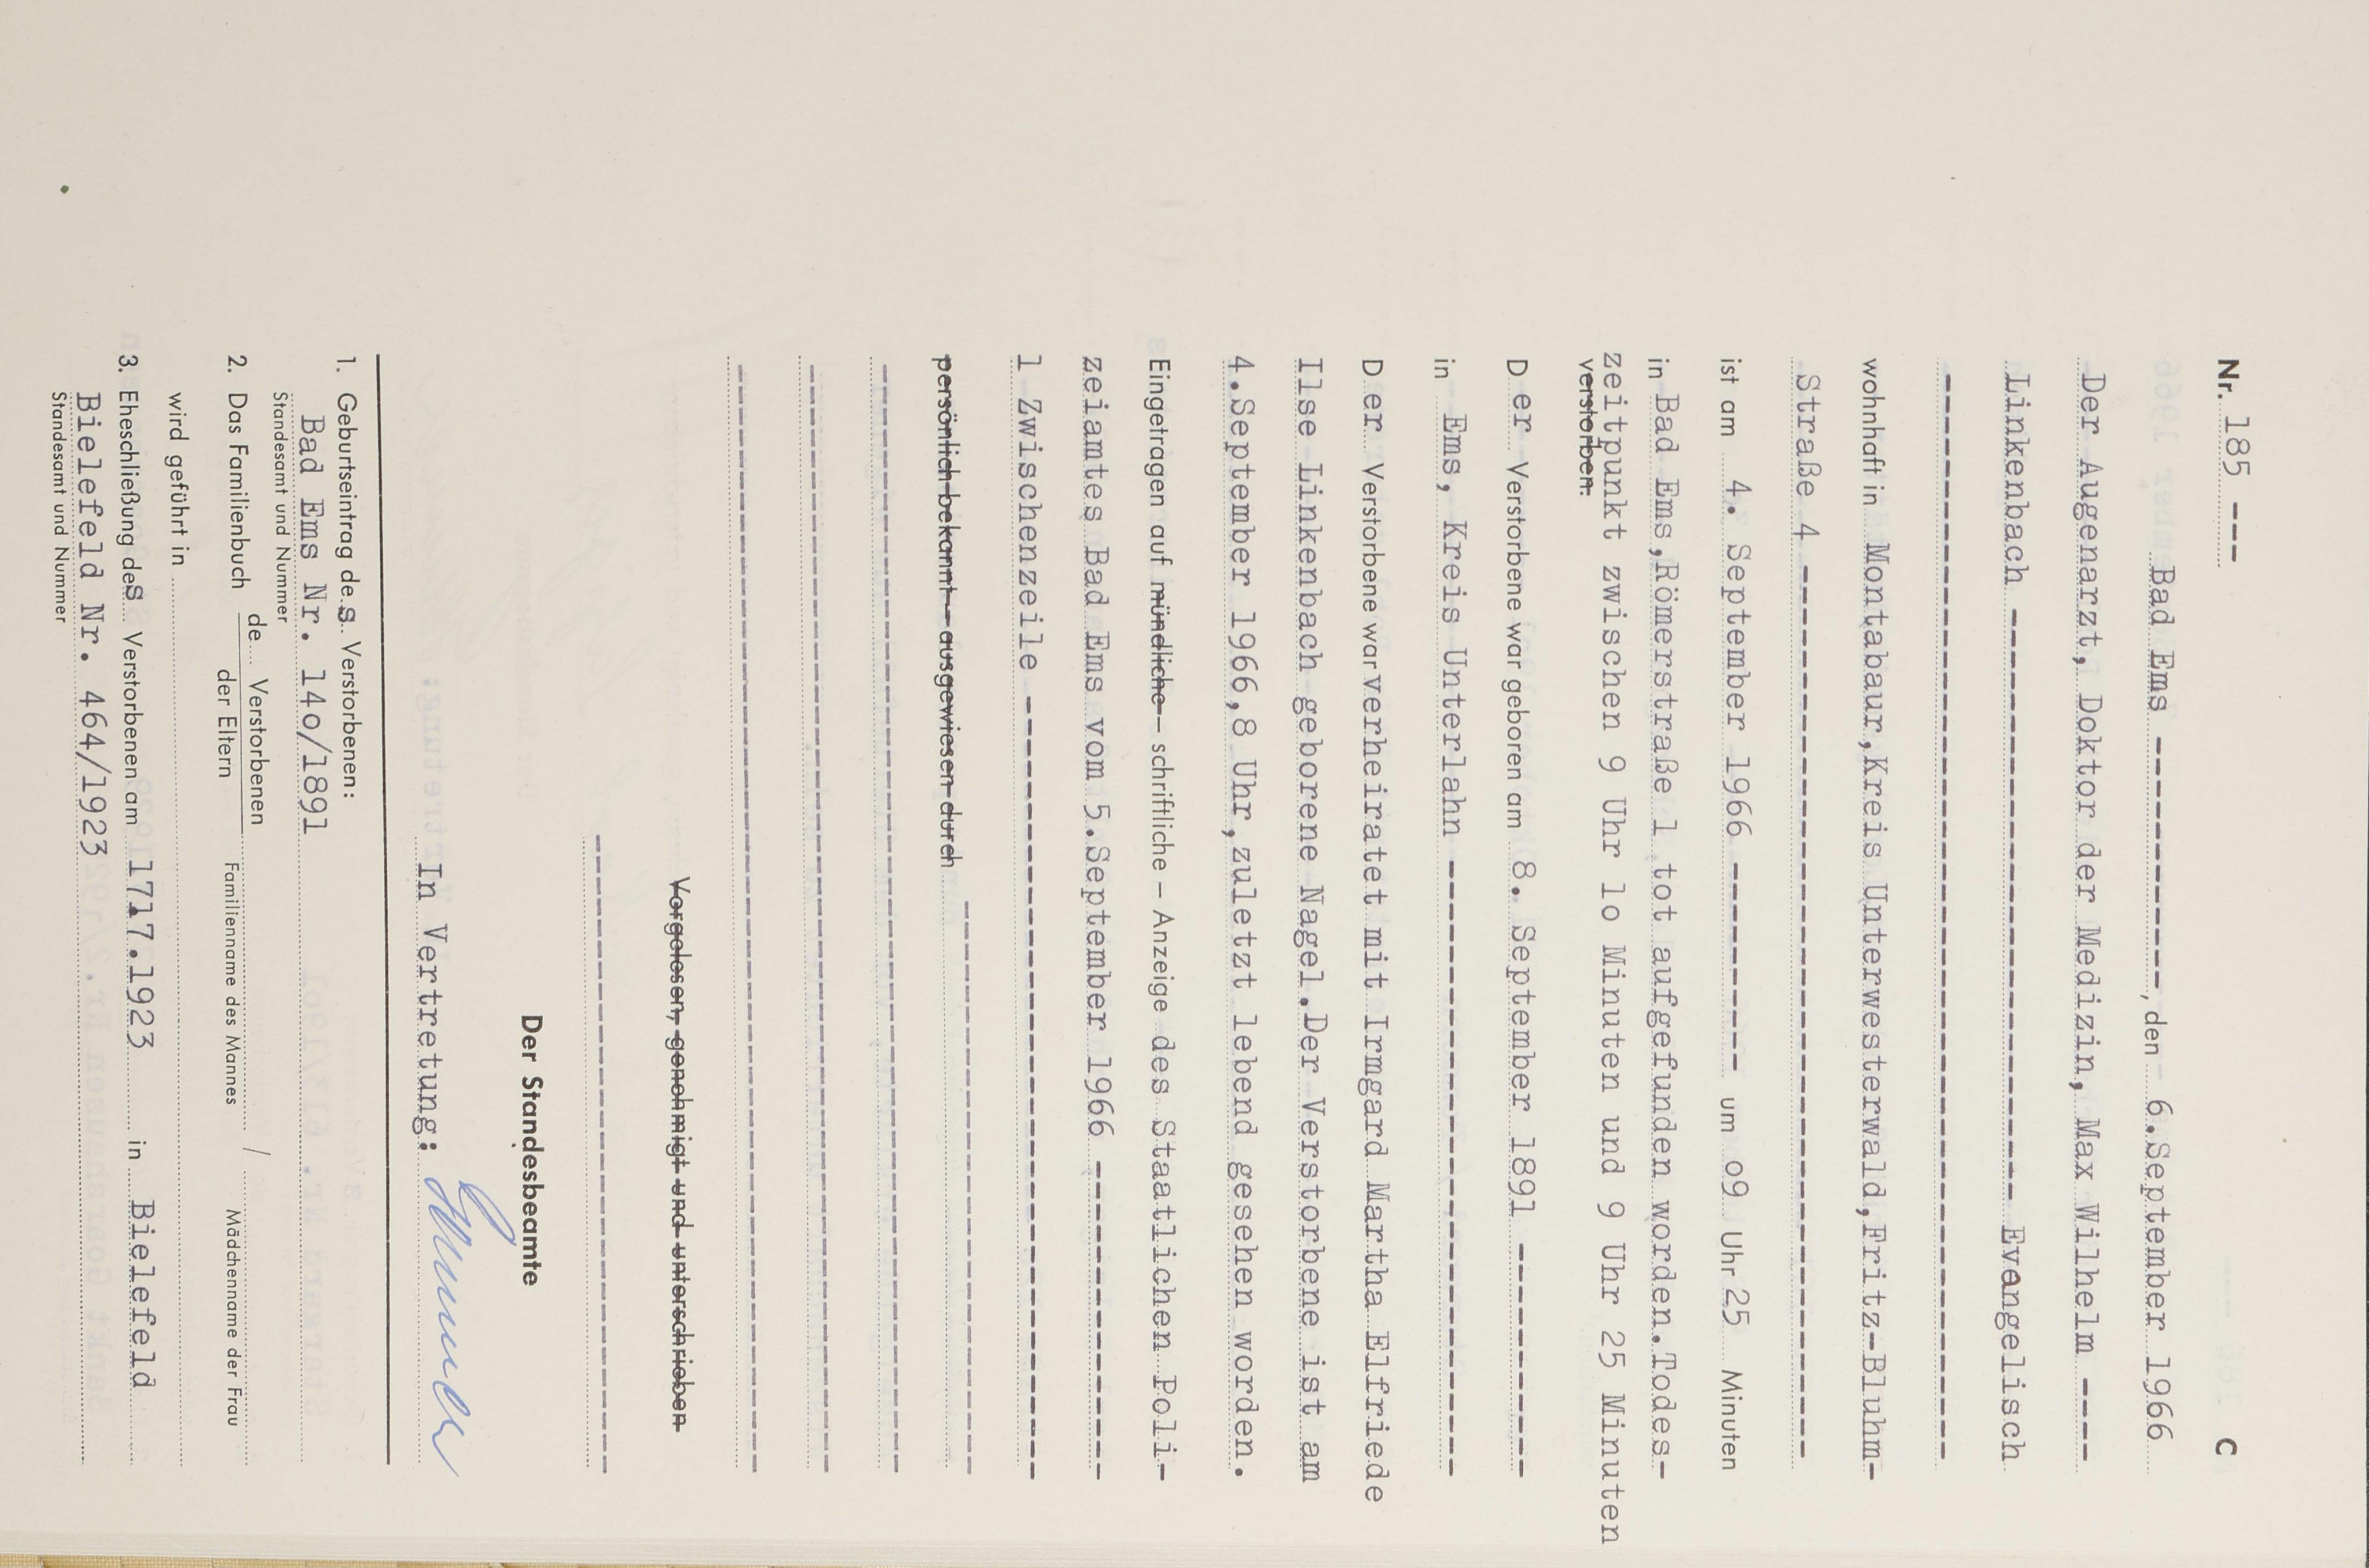 Nr. 185 --- C
Bad Ems -------------, den 6.September 1966
Der Augenarzt, Doktor der Medizin, Max Wilhelm ----
Linkenbach ------------------------------ Evangelisch
------------------------------------------------------
wohnhaft in Montabaur,Kreis Unterwesterwald,Fritz-Bluhm-
Straße 4 ---------------------------------------------
ist am 4. September 1966 ---------- um o9 Uhr 25 Minuten
in Bad Ems,Römerstraße 1 tot aufgefunden worden.Todes-
zeitpunkt zwischen 9 Uhr 1o Minuten und 9 Uhr 25 Minuten
verstorben.
D er Verstorbene war geboren am 8. September 1891 -----------
in Ems, Kreis Unterlahn ------------------------------
D er Verstorbene war verheiratet mit Irmgard Martha Elfriede
Ilse Linkenbach geborene Nagel.Der Verstorbene ist am
4.September 1966,8 Uhr,zuletzt lebend gesehen worden.
Eingetragen auf mündliche – schriftliche – Anzeige des Staatlichen Poli-
zeiamtes Bad Ems vom 5.September 1966 ---------------
1 Zwischenzeile --------------------------------------
persönlich bekannt – ausgewiesen durch ---------------------------
------------------------------------------------------
------------------------------------------------------
------------------------------------------------------
Vorgelesen, genehmigt und unterschrieben
-------------------------------
Der Standesbeamte
In Vertretung:
1. Geburtseintrag des Verstorbenen:
Bad Ems Nr. 14o/1891
Standesamt und Nummer
2. Das Familienbuch de Verstorbenen / der Eltern
Familienname des Mannes / Mädchenname der Frau
wird geführt in
3. Eheschließung des Verstorbenen am 1717.1923 in Bielefeld
Bielefeld Nr. 464/1923
Standesamt und Nummer